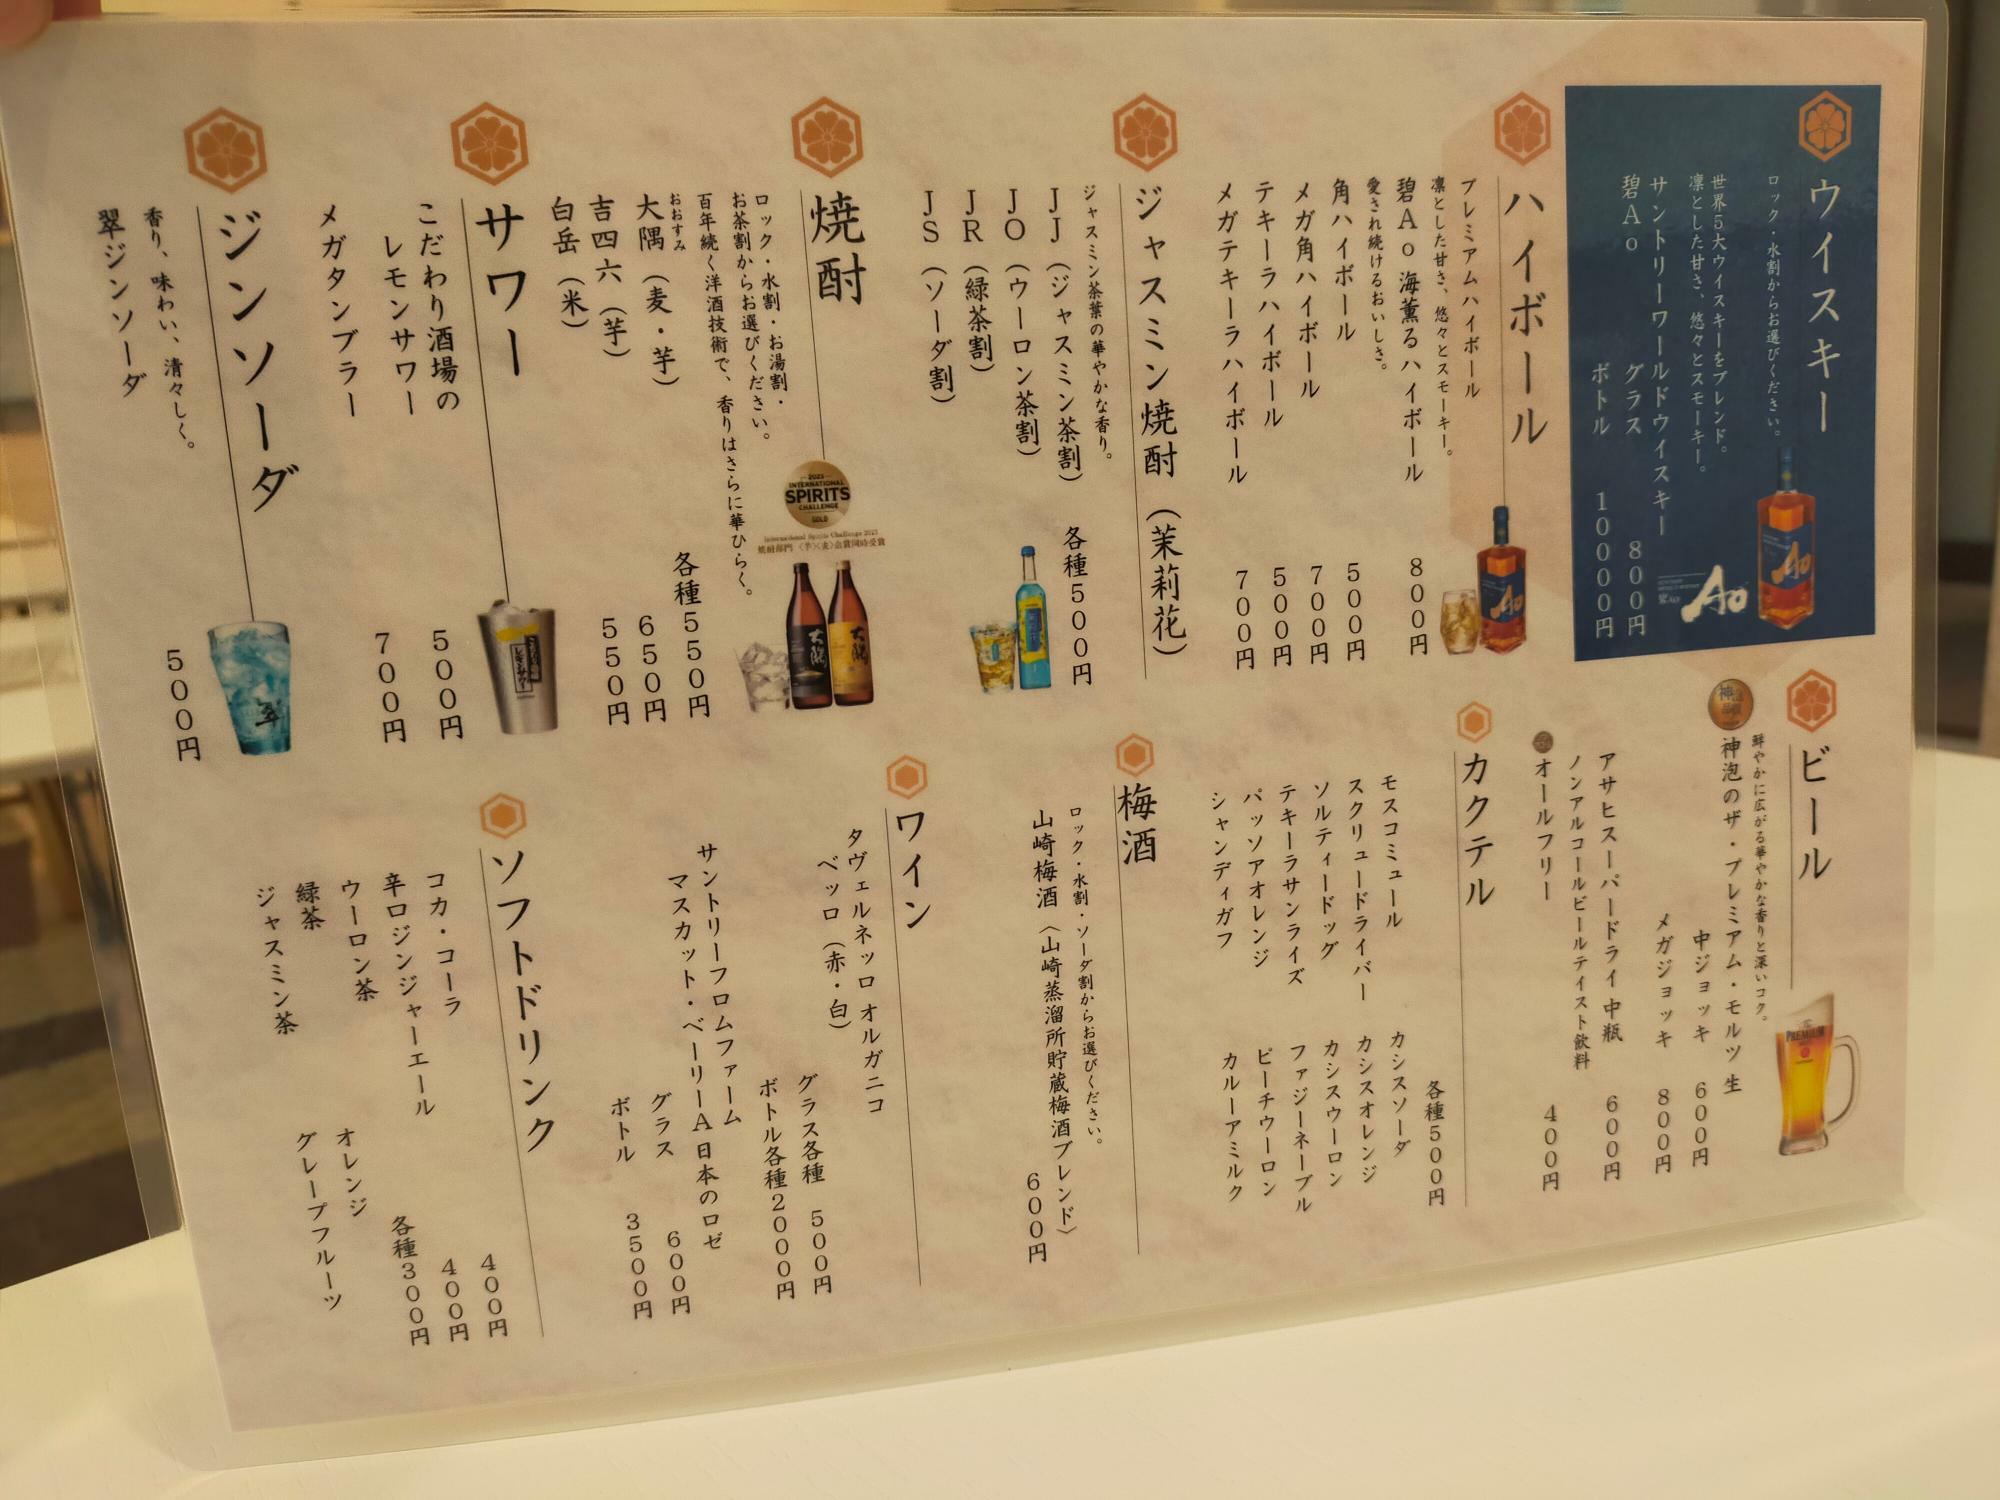 ウイスキー
ロック・水割からお選びください。
世界5大ウイスキーをブレンド。
凛とした甘さ、悠々とスモーキー。
サントリーワールドウイスキー
碧Ao
グラス 800円
ボトル 10000円
Ao
碧Ao
ハイボール
プレミアムハイボール
凛とした甘さ、悠々とスモーキー。
碧Ao 海薫るハイボール 800円
愛され続けるおいしさ。
角ハイボール 500円
メガ角ハイボール 700円
テキーラハイボール 500円
メガテキーラハイボール 700円
ジャスミン焼酎（茉莉花）
ジャスミン茶葉の華やかな香り。
各種500円
JJ（ジャスミン茶割）
JO（ウーロン茶割）
JR（緑茶割）
JS（ソーダ割）
焼酎
ロック・水割・お湯割・
お茶割からお選びください。
百年続く洋酒技術で、香りはさらに華ひらく。
おおすみ
大隅（麦・芋） 各種550円
吉四六（芋） 650円
白岳（米） 550円
2023
INTERNATIONAL
SPIRITS
CHALLENGE
GOLD
International Spirits Challenge 2023
焼酎部門〈芋〉〈麦〉金賞同時受賞
大隅
大隅
サワー
こだわり酒場の
レモンサワー 500円
メガタンブラー 700円
こだわり酒場の
レモンサワー
ジンソーダ
香り、味わい、清々しく。
翠ジンソーダ 500円
翠
ビール
鮮やかに広がる華やかな香りと深いコク。
神泡
神泡のザ・プレミアム・モルツ 生
中ジョッキ 600円
メガジョッキ 800円
アサヒスーパードライ 中瓶 600円
ノンアルコールビールテイスト飲料
オールフリー 400円
PREMIUM
カクテル
各種500円
モスコミュール
スクリュードライバー
ソルティードッグ
テキーラサンライズ
パッソアオレンジ
シャンディガフ
カシスソーダ
カシスオレンジ
カシスウーロン
ファジーネーブル
ピーチウーロン
カルーアミルク
梅酒
ロック・水割・ソーダ割からお選びください。
山崎梅酒〈山崎蒸溜所貯蔵梅酒ブレンド〉
600円
ワイン
タヴェルネッロ オルガニコ
ベッロ（赤・白）
グラス各種 500円
ボトル各種2000円
サントリーフロムファーム
マスカット・ベーリーA 日本のロゼ
グラス 600円
ボトル 3500円
ソフトドリンク
コカ・コーラ 400円
辛口ジンジャーエール 400円
ウーロン茶
緑茶
ジャスミン茶
オレンジ
グレープフルーツ
各種300円